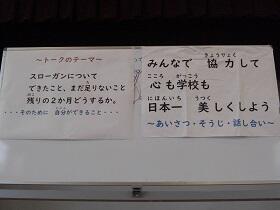 ～トークのテーマ～
スローガンについて
できたこと、まだ足りないこと
残りの２か月どうするか。
・・・そのために 自分ができること・・・
みんなで 協力して
きょうりょく
心も学校も
こころ がっこう
日本一 美しくしよう
にほんいち うつく
～あいさつ・そうじ・話し合い～